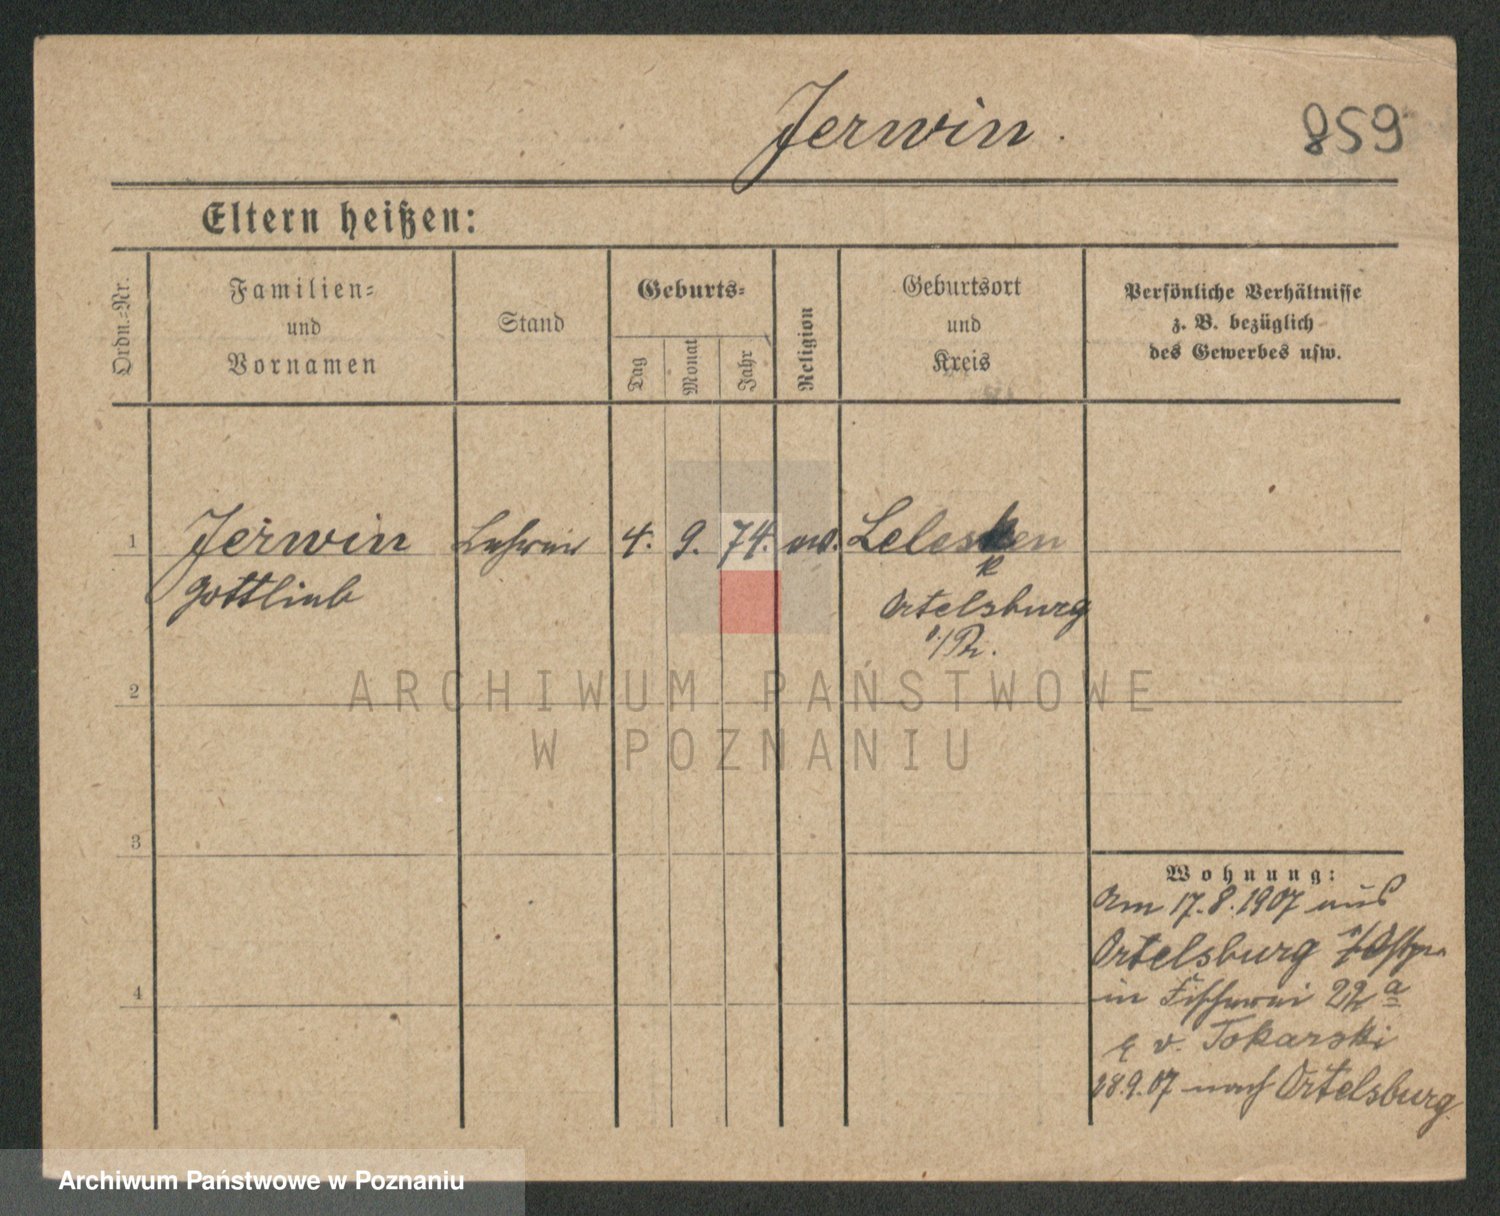 Jerwin.
859
Eltern heißen:
Ordn.-Nr.
Familien-
und
Vornamen
Stand
Geburts-
Tag
Monat
Jahr
Religion
Geburtsort
und
Kreis
Persönliche Verhältnisse
z. B. bezüglich
des Gewerbes usw.
1
Jerwin
Gottlieb
Lehrer
4. 9. 74.
Lelesken
k
Ortelsburg
2
3
4
Wohnung:
Am 17.8.1907 aus
Ortelsburg
in Fischerei 22 a
v. Tokarski
28.9.07 nach Ortelsburg.
ARCHIWUM PAŃSTWOWE
W POZNANIU
Archiwum Państwowe w Poznaniu